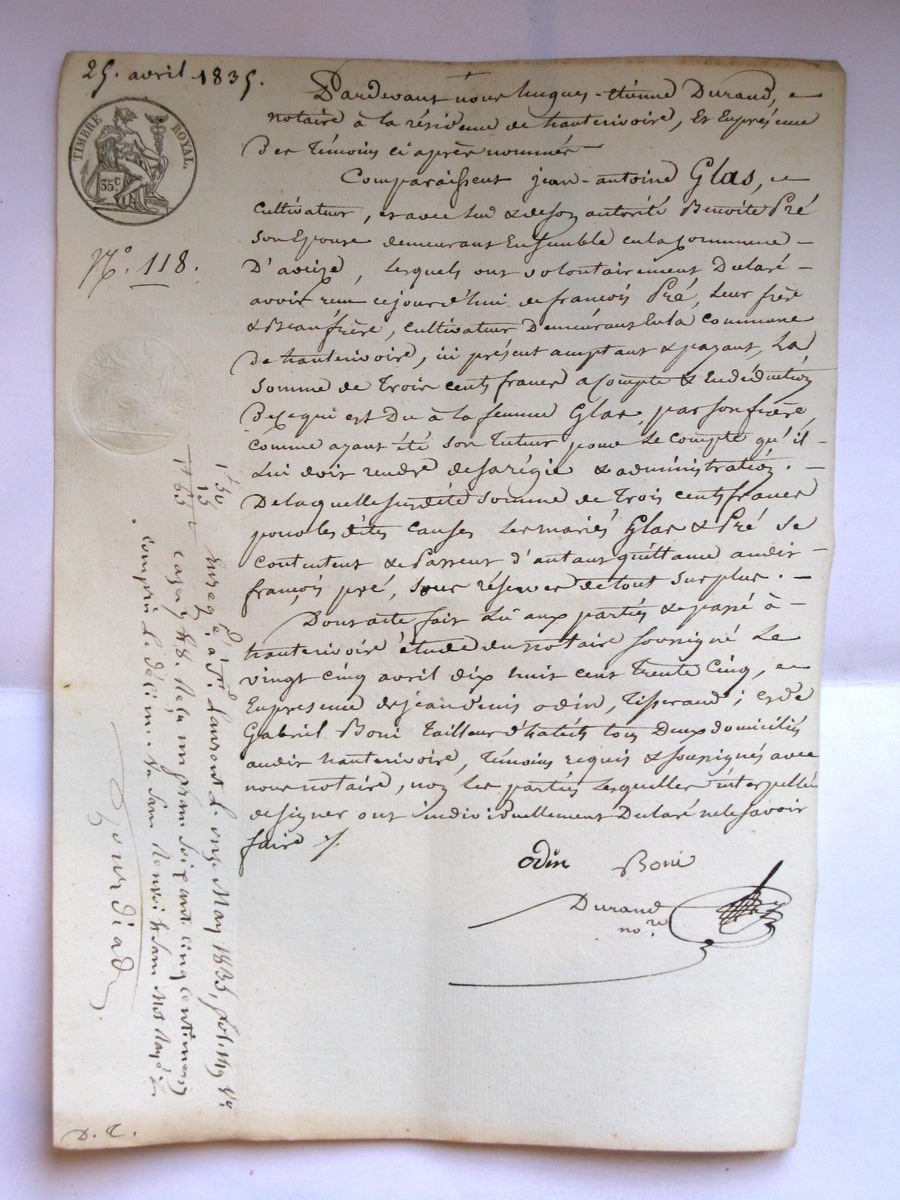 25. avril 1835.
TIMBRE ROYAL.
35c
N.o 118.
Pardevant nous hugues-etienne Durand,
notaire à la résidence de hauterivoire, et En présence
Des Témoins ci après nommés
Comparaissent jean-antoine Glas,
Cultivateur, et avec lui & de son autorité Benoite Pré
son Epouse demeurant Ensemble en la commune
D'aveize, Lesquels ont volontairement Déclaré
avoir reçu cejourd'hui de françois Pré, Leur frère
& Beaufrère, Cultivateur Demeurant En la commune
de hauterivoire, ici présent acceptant & payant, La
somme de Trois cents francs a compte & En déduction
De ce qui est Du à la femme Glas, par son frère,
comme ayant été son Tuteur pour Le compte qu'il
Lui doit rendre de sa régie & administration.
De laquelle susdite somme de Trois cents francs
pour les dites causes Les mariés Glas & Pré se
Contentent & Passent d'autant quittance audit
françois pré, sous réserves de tout surplus.
Dont acte fait Lû aux parties & passé à
hauterivoire étude du notaire soussigné Le
vingt cinq avril dix huit cent Trente Cinq,
En présence de jean denis odin, Tisserand; et de
Gabriel Boni Tailleur d'habits tous Deux domiciliés
audit hauterivoire, Témoins requis & soussignés avec
nous notaire, non les parties Lesquelles interpellées
de signer ont individuellement Déclaré ne le savoir
faire
odin Boni
Durand
no.re
1f 50
15
1f 65
Enreg. à St Laurent Le onze May 1835, fol. 119 Vo
cases 7 & 8. Reçu un franc soixante cinq centimes
compris Le décime sans Renvoi & sans mot Rayé
D. C.